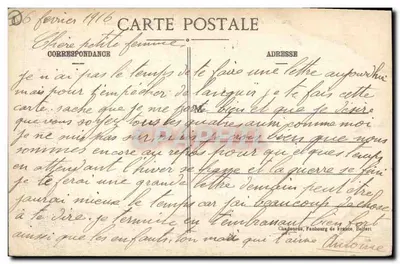 6 février 1916
CARTE POSTALE
Chère petite femme
CORRESPONDANCE
ADRESSE
je n'ai pas le temps de te faire une lettre aujourd'hui
mais pour t'empêcher de languir je te fais cette
carte. sache que je me porte bien et que je désire
que vous soyez tous les quatre ainsi comme moi
je ne mis pas bien que nous
sommes encore au repos pour quelques temps
en attendant l'hiver se passe et la guerre se fini
je te ferai une grande lettre demain peut être
jaurai mieux le temps car jai beaucoup de chose
à te dire. je termine en t'embrassant bien fort
ainsi que les enfants. ton mari qui t'aime
Antoine
Faubourg de France, Belfort